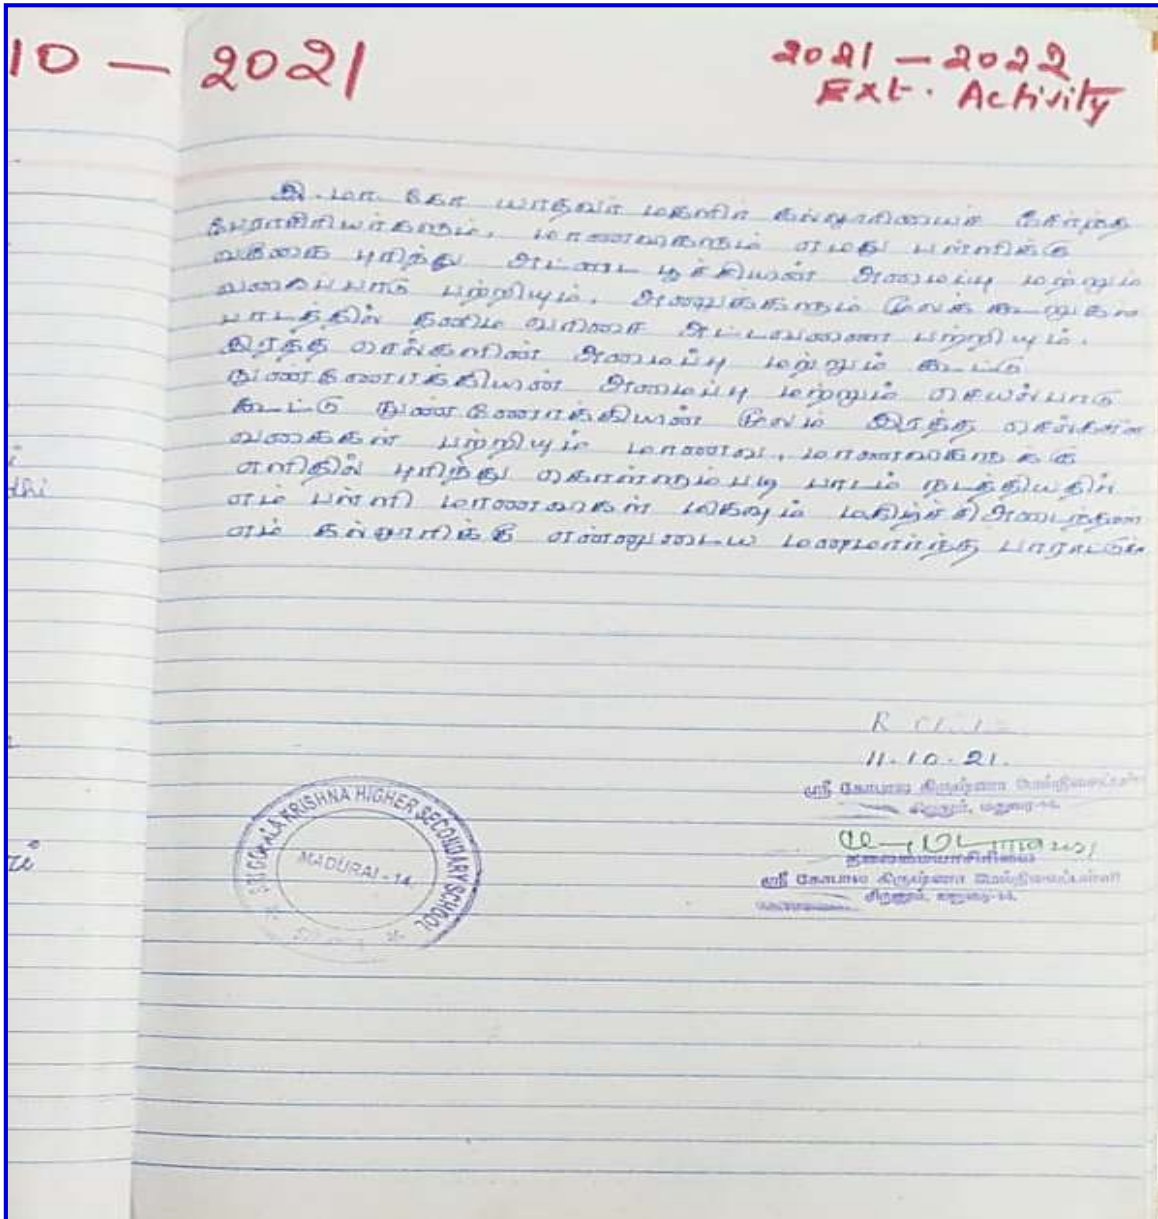 10 - 2021
2021 - 2022
Ext. Activity
இ. மா. கோ யாதவர் மகளிர் கல்லூரியைச் சேர்ந்த
பேராசிரியர்களும், மாணவிகளும் எமது பள்ளிக்கு
வருகை புரிந்து அட்டை பூச்சியின் அமைப்பு மற்றும்
வகைப்பாடு பற்றியும், அணுக்களும் மூலக்கூறுகள
பாடத்தில் தனிம வரிசை அட்டவணை பற்றியும்.
இரத்த செல்களின் அமைப்பு மற்றும் கூட்டு
நுண்ணோக்கியின் அமைப்பு மற்றும் செயல்பாடு
கூட்டு நுண்ணோக்கியின் மூலம் இரத்த செல்களின்
வகைகள் பற்றியும் மாணவ, மாணவிகளுக்கு
எளிதில் புரிந்து கொள்ளும்படி பாடம் நடத்தியதில்
எம் பள்ளி மாணவர்கள் மிகவும் மகிழ்ச்சி அடைந்தன
எம் கல்லூரிக்கு என்னுடைய மனமார்ந்த பாராட்டுக்
dhi
R
11.10.21.
ஸ்ரீ கோபால கிருஷ்ணா மேல்நிலைப்பள்ளி
மதுரை-14.
தலைமையாசிரியை
ஸ்ரீ கோபால கிருஷ்ணா மேல்நிலைப்பள்ளி
மதுரை-14.
SRI GOPALA KRISHNA HIGHER SECONDARY SCHOOL
MADURAI - 14